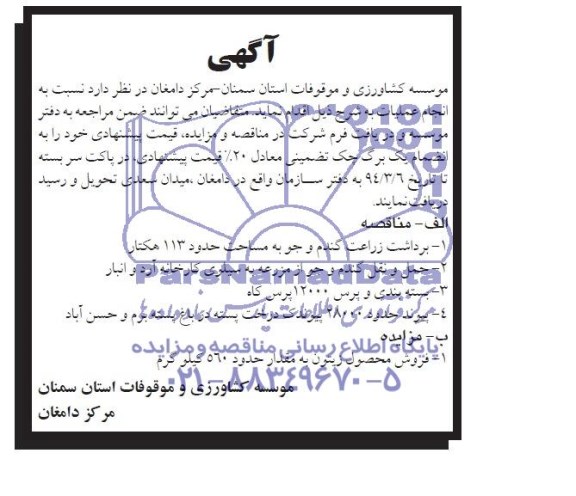 آگهی
موسسه کشاورزی و موقوفات استان سمنان-مرکز دامغان در نظر دارد نسبت به
انجام عملیات به شرح ذیل اقدام نماید. متقاضیان می توانند ضمن مراجعه به دفتر
موسسه و دریافت فرم شرکت در مناقصه و مزایده، قیمت پیشنهادی خود را به
انضمام یک برگ چک تضمینی معادل ۲۰٪ قیمت پیشنهادی، در پاکت سر بسته
تا تاریخ ۹۴/۳/۶ به دفتر سازمان واقع در دامغان ،میدان سعدی تحویل و رسید
دریافت نمایند.
الف- مناقصه
۱- برداشت زراعت گندم و جو به مساحت حدود ۱۱۳ هکتار
۲- حمل و نقل گندم و جو از مزرعه به سیلوی کارخانه آرد و انبار
۳- بسته بندی و پرس ۱۲۰۰۰ پرس کاه
۴- پیوند حدود ۲۸۰۰۰ پیوندک درخت پسته در باغ پسته بوم و حسن آباد
ب- مزایده
۱- فروش محصول زیتون به مقدار حدود ۵۶۰ کیلو گرم
موسسه کشاورزی و موقوفات استان سمنان
مرکز دامغان
ParsNamadData
پایگاه اطلاع رسانی مناقصه و مزایده
۰۲۱-۸۸۳۴۹۶۷۰-۵